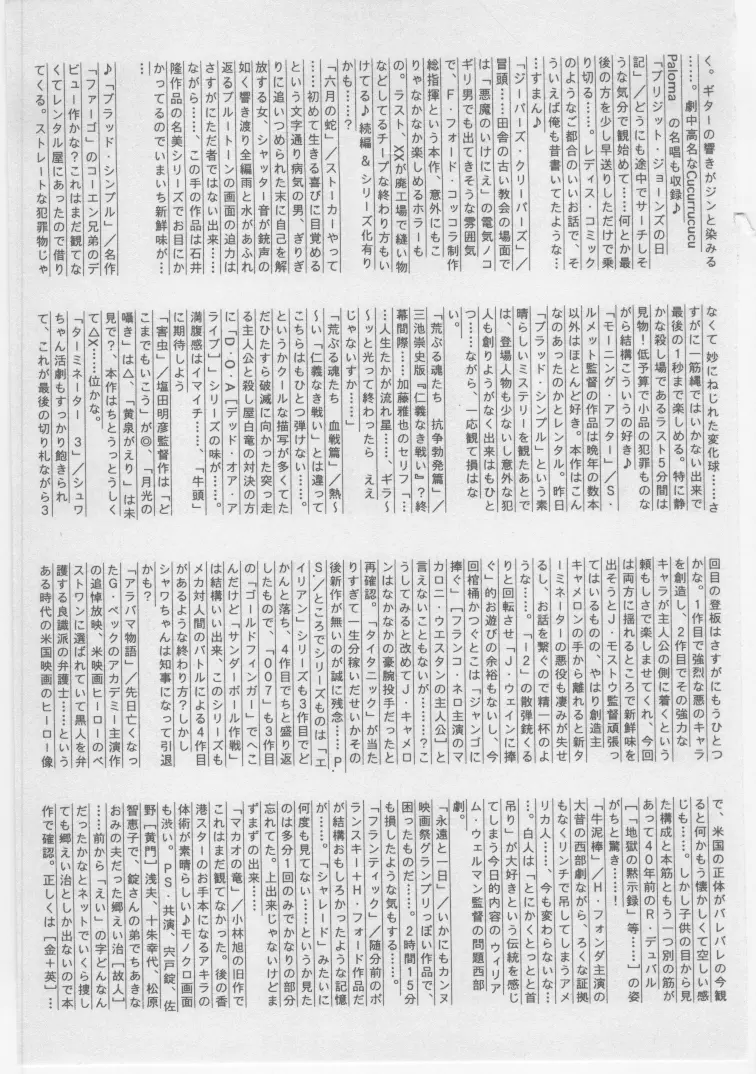 く。ギターの響きがジンと染みる
……。劇中高名なCucurrucucu
Paloma の名唱も収録♪
「ブリジット・ジョーンズの日
記」／どうにも途中でサーチしそ
うな気分で観始めて……何とか最
後の方を少し早送りしただけで乗
り切る……。レディス・コミック
のようなご都合のいいお話で、そ
ういえば俺も昔書いてたような…
…すまん♪
「ジーパーズ・クリーパーズ」／
冒頭……田舎の古い教会の場面で
は「悪魔のいけにえ」の電気ノコ
ギリ男でも出てきそうな雰囲気
で、F・フォード・コッコラ制作
総指揮という本作、意外にもこ
りゃなかなか楽しめるホラーも
の。ラスト、XXが廃工場で縫い物
などしてるチープな終わり方もい
けてる♪続編＆シリーズ化有り
かも……？
「六月の蛇」／ストーカーやって
……初めて生きる喜びに目覚める
という文字通り病気の男、ぎりぎ
りに追いつめられた末に自己を解
放する女、シャッター音が銃声の
如く響き渡り全編雨と水があふれ
返るブルートーンの画面の迫力は
さすがにただ者ではない出来……
ながら……、この手の作品は石井
隆作品の名美シリーズでお目にか
かってるのでいまいち新鮮味が…
…
♪「ブラッド・シンプル」／名作
「ファーゴ」のコーエン兄弟のデ
ビュー作かな？これはまだ観てな
くてレンタル屋にあったので借り
てくる。ストレートな犯罪物じゃ
なくて 妙にねじれた変化球……さ
すがに一筋縄ではいかない出来で
最後の1秒まで楽しめる。特に静
かな殺し場であるラスト5分間は
見物！低予算で小品の犯罪ものな
がら結構こういうの好き♪
「モーニング・アフター」／S・
ルメット監督の作品は晩年の数本
以外はほとんど好き。本作はこん
なのあったのかとレンタル。昨日
「ブラッド・シンプル」という素
晴らしいミステリーを観たあとで
は、登場人物も少ないし意外な犯
人も創りようがなく出来はもひと
つ……ながら、一応観て損はな
い。
「荒ぶる魂たち 抗争勃発篇」／
三池崇史版『仁義なき戦い』？終
幕間際……加藤雅也のセリフ「…
…人生たかが流れ星……、ギラ〜
〜ッと光って終わったら ええ
じゃないすか……」
「荒ぶる魂たち 血戦篇」／熱〜
〜い「仁義なき戦い」とは違って
こちらはもひとつ弾けない……。
というかクールな描写が多くてた
だひたすら破滅に向かった突っ走
る主人公と殺し屋白竜の対決の方
に「D・O・A［デッド・オア・ア
ライブ］」シリーズの味が……。
満腹感はイマイチ……、「牛頭」
に期待しよう
「害虫」／塩田明彦監督作は「ど
こまでもいこう」が◎、「月光の
囁き」は△、「黄泉がえり」は未
見で？、本作はちとうっとうしく
て△X……位かな。
「ターミネーター 3」／シュワ
ちゃん活劇もすっかり飽きられ
て、これが最後の切り札ながら3
回目の登板はさすがにもうひとつ
かな。1作目で強烈な悪のキャラ
を創造し、2作目でその強力な
キャラが主人公の側に着くという
頼もしさで楽しませてくれ、今回
は両方に揺れるところで新鮮味を
出そうとJ・モストウ監督頑張っ
てはいるものの、やはり創造主
キャメロンの手から離れると新タ
ーミネーターの悪役も凄みが失せ
るし、お話を繋ぐので精一杯のよ
うな……。「−2」の散弾銃くる
りと回転させ「J・ウェインに捧
ぐ」的お遊びの余裕もないし、今
回棺桶かつぐとこは「ジャンゴに
捧ぐ」［フランコ・ネロ主演のマ
カロニ・ウエスタンの主人公］と
言えないこともないが……？こ
うしてみると改めてJ・キャメロ
ンはなかなかの豪腕投手だったと
再確認。「タイタニック」が当た
りすぎて一生分稼いだせいかその
後新作が無いのが誠に残念……P.
S／ところでシリーズものは「エ
イリアン」シリーズも3作目でど
かんと落ち、4作目でちと盛り返
したもので、「007」も3作目
の「ゴールドフィンガー」でへこ
んだけど「サンダーボール作戦」
は結構いい出来、このシリーズも
メカ対人間のバトルによる4作目
があるような終わり方？しかし
シャワちゃんは知事になって引退
かも？
「アラバマ物語」／先日亡くなっ
たG・ペックのアカデミー主演作
の追悼放映、米映画ヒーローのベ
ストワンに選ばれていて黒人を弁
護する良識派の弁護士……という
ある時代の米国映画のヒーロー像
で、米国の正体がバレバレの今観
ると何かもう懐かしくて空しい感
じも……。しかし子供の目から見
た構成と本筋ともう一つ別の筋が
あって40年前のR・デュバル
［「地獄の黙示録」等……］の姿
がちと驚き……！
「牛泥棒」／H・フォンダ主演の
大昔の西部劇ながら、ろくな証拠
もなくリンチで吊してしまうアメ
リカ人……、今も変わらないな…
…。白人は「とにかくとっとと首
吊り」が大好きという伝統を感じ
てしまう今日的内容の ウィリア
ム・ウェルマン監督の問題西部
劇。
「永遠と一日」／いかにもカンヌ
映画祭グランプリっぽい作品で、
困ったものだ……。2時間15分
も損したような気もする……。
「フランティック」／随分前のポ
ランスキー＋H・フォード作品だ
が結構おもしろかったような記憶
が……。「シャレード」みたいに
何度も見てない……というか見た
のは多分1回のみでかなりの部分
忘れてた。上出来じゃないけどま
ずまずの出来……
「マカオの竜」／小林旭の旧作で
これはまだ観てなかった。後の香
港スターのお手本になるアキラの
体術が素晴らしい♪モノクロ画面
も渋い。PS・共演、宍戸錠、佐
野［黄門］浅夫、十朱幸代、松原
智恵子で、錠さんの弟でちあきな
おみの夫だった郷えい治［故人］
……前から「えい」の字どんなん
だったかなとネットでいくら捜し
ても郷えい治としか出ないので本
作で確認。正しくは［金＋英］…